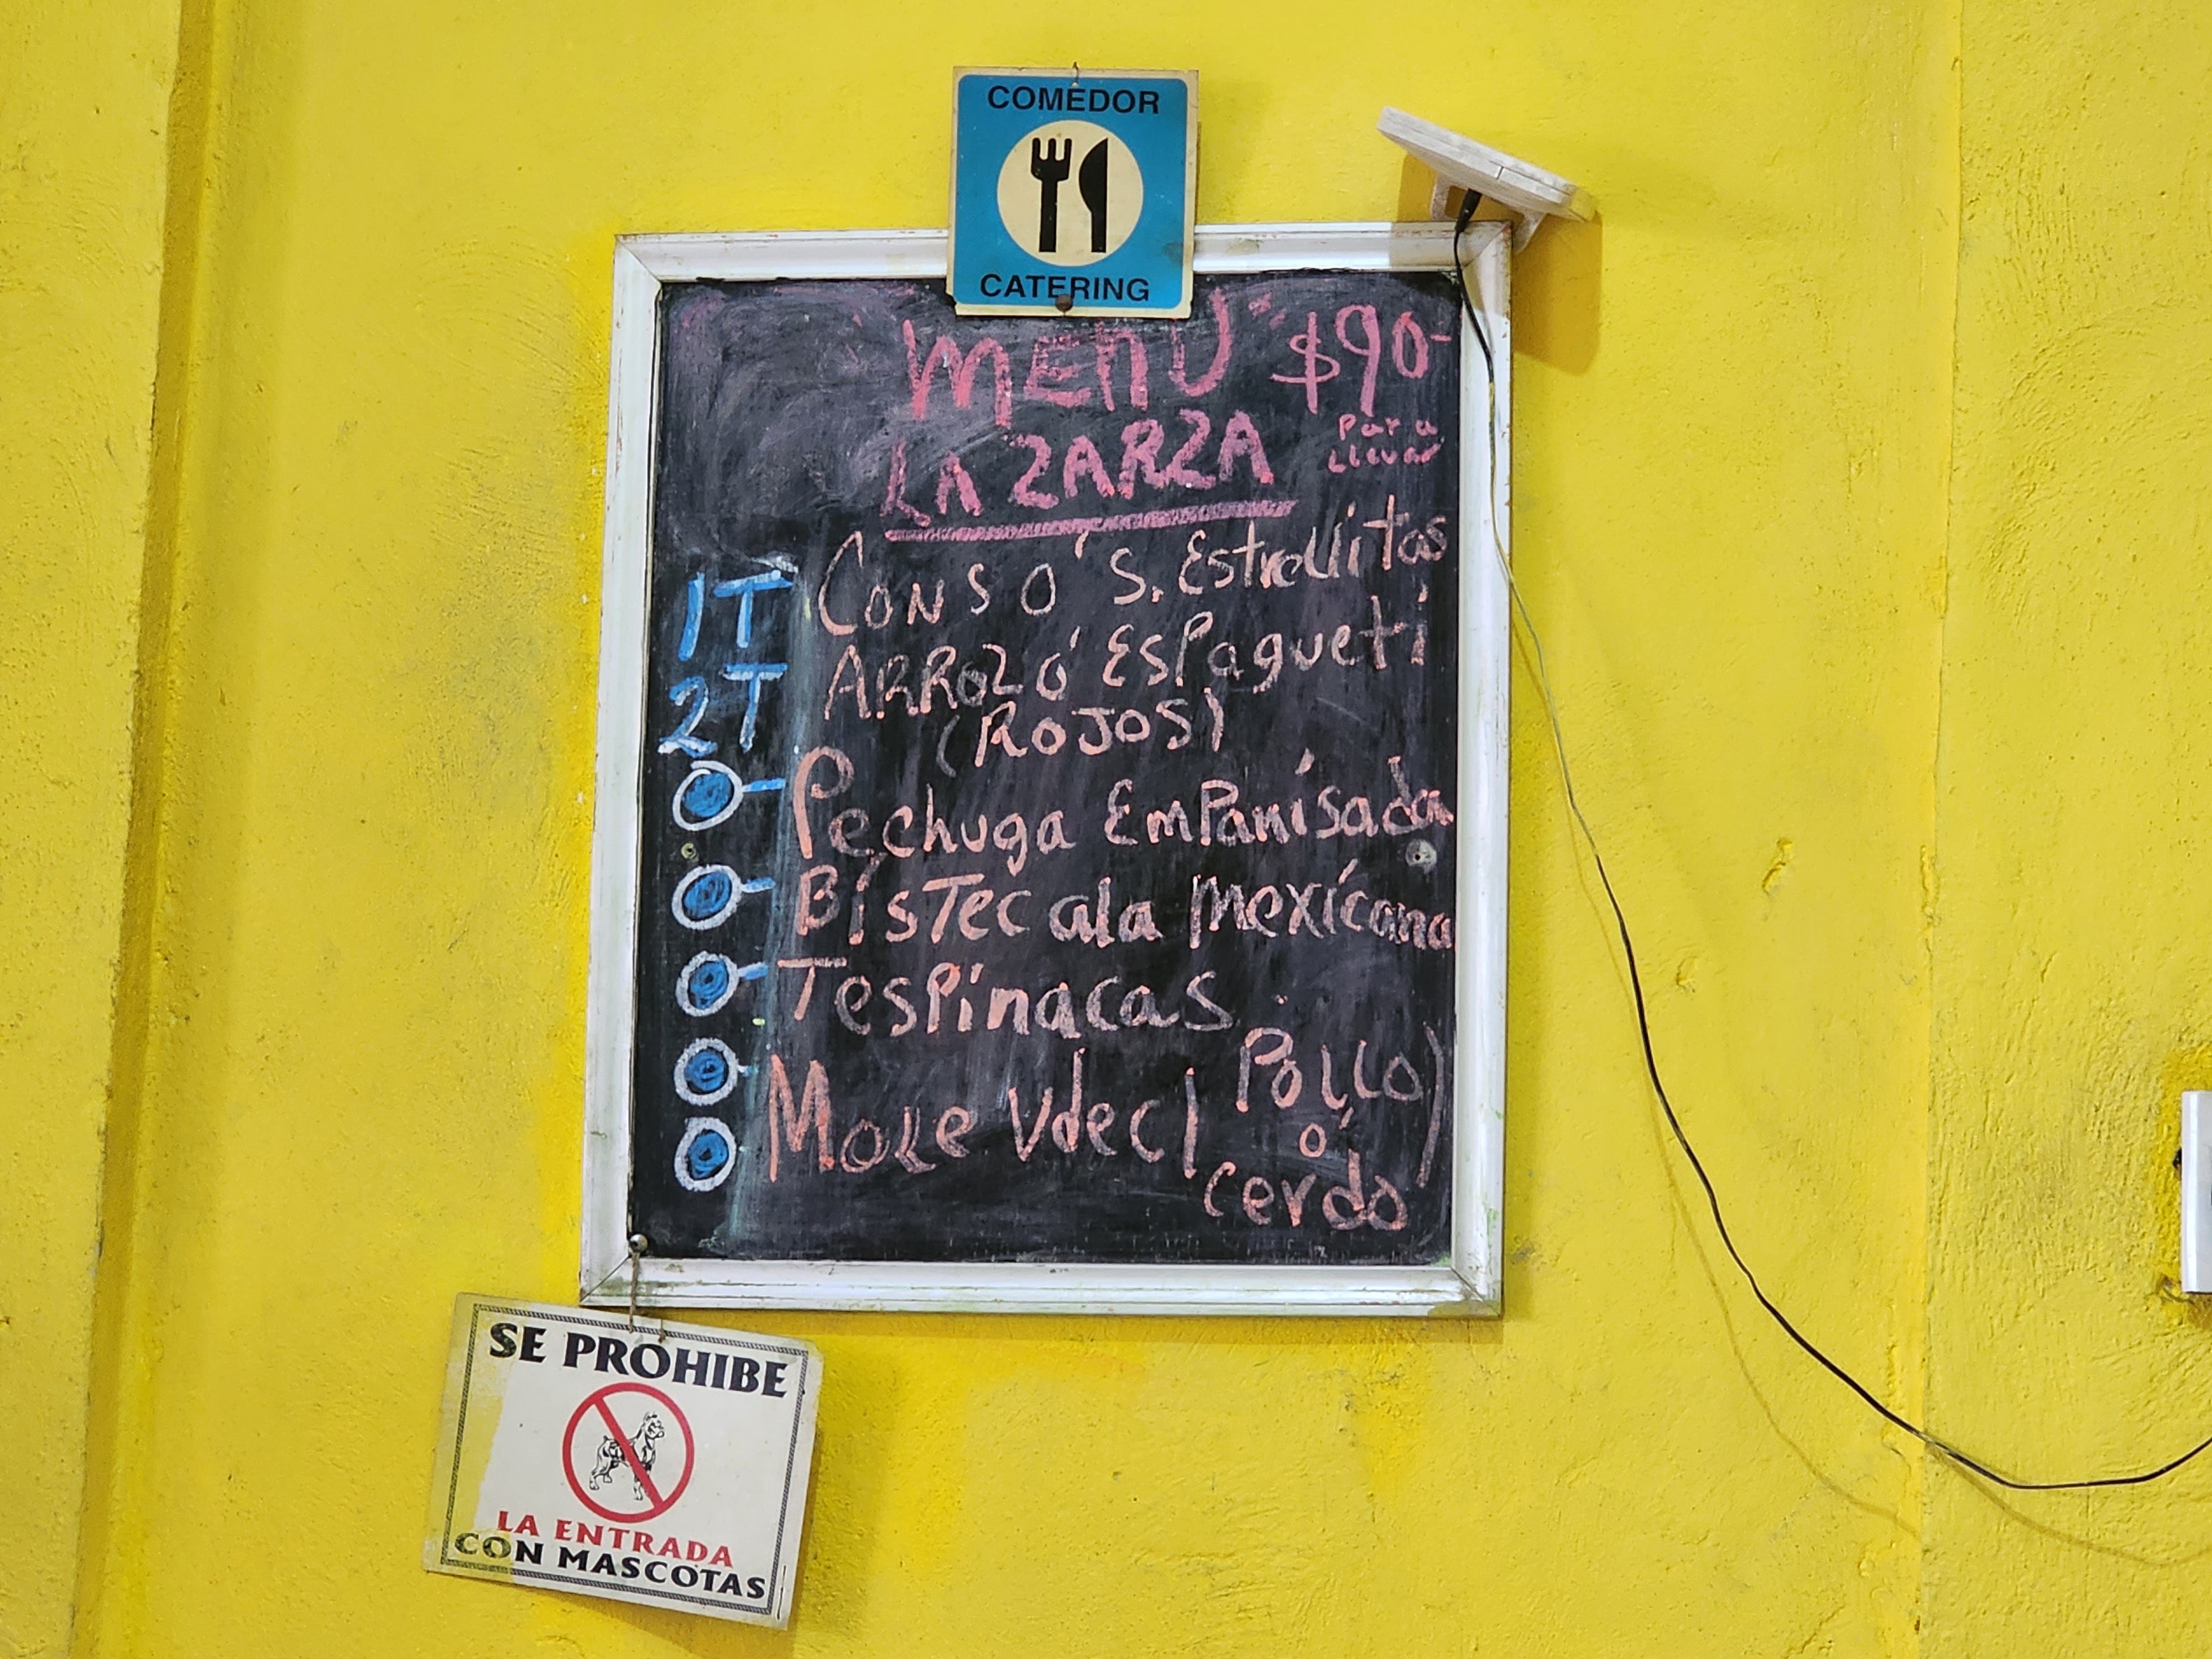 COMEDOR
CATERING
MENU $90-
Para
LLevar
LA ZARZA
1T CONSO Ó S. Estrellitas
2T ARROZ Ó ESPagueti
(ROJOS)
Pechuga EmPanisada
BisTec ala Mexicana
TesPinacas
Mole Vde C/ Pollo)
ó
Cerdo
SE PROHIBE
LA ENTRADA
CON MASCOTAS